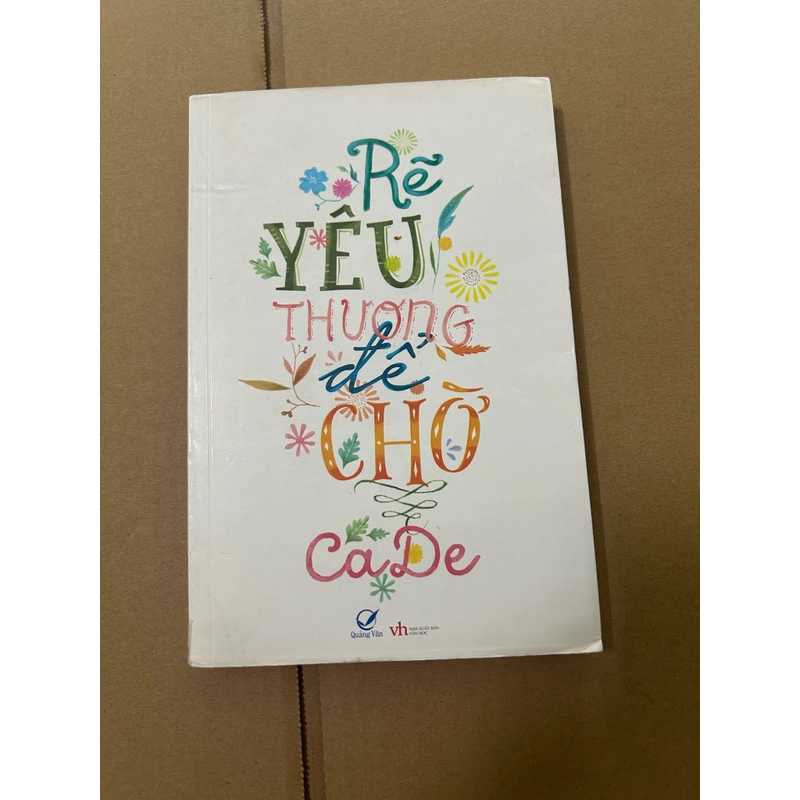 Rẽ
YÊU
THƯƠNG
để
CHỜ
CaDe
Quảng Văn
vh NHÀ XUẤT BẢN
VĂN HỌC